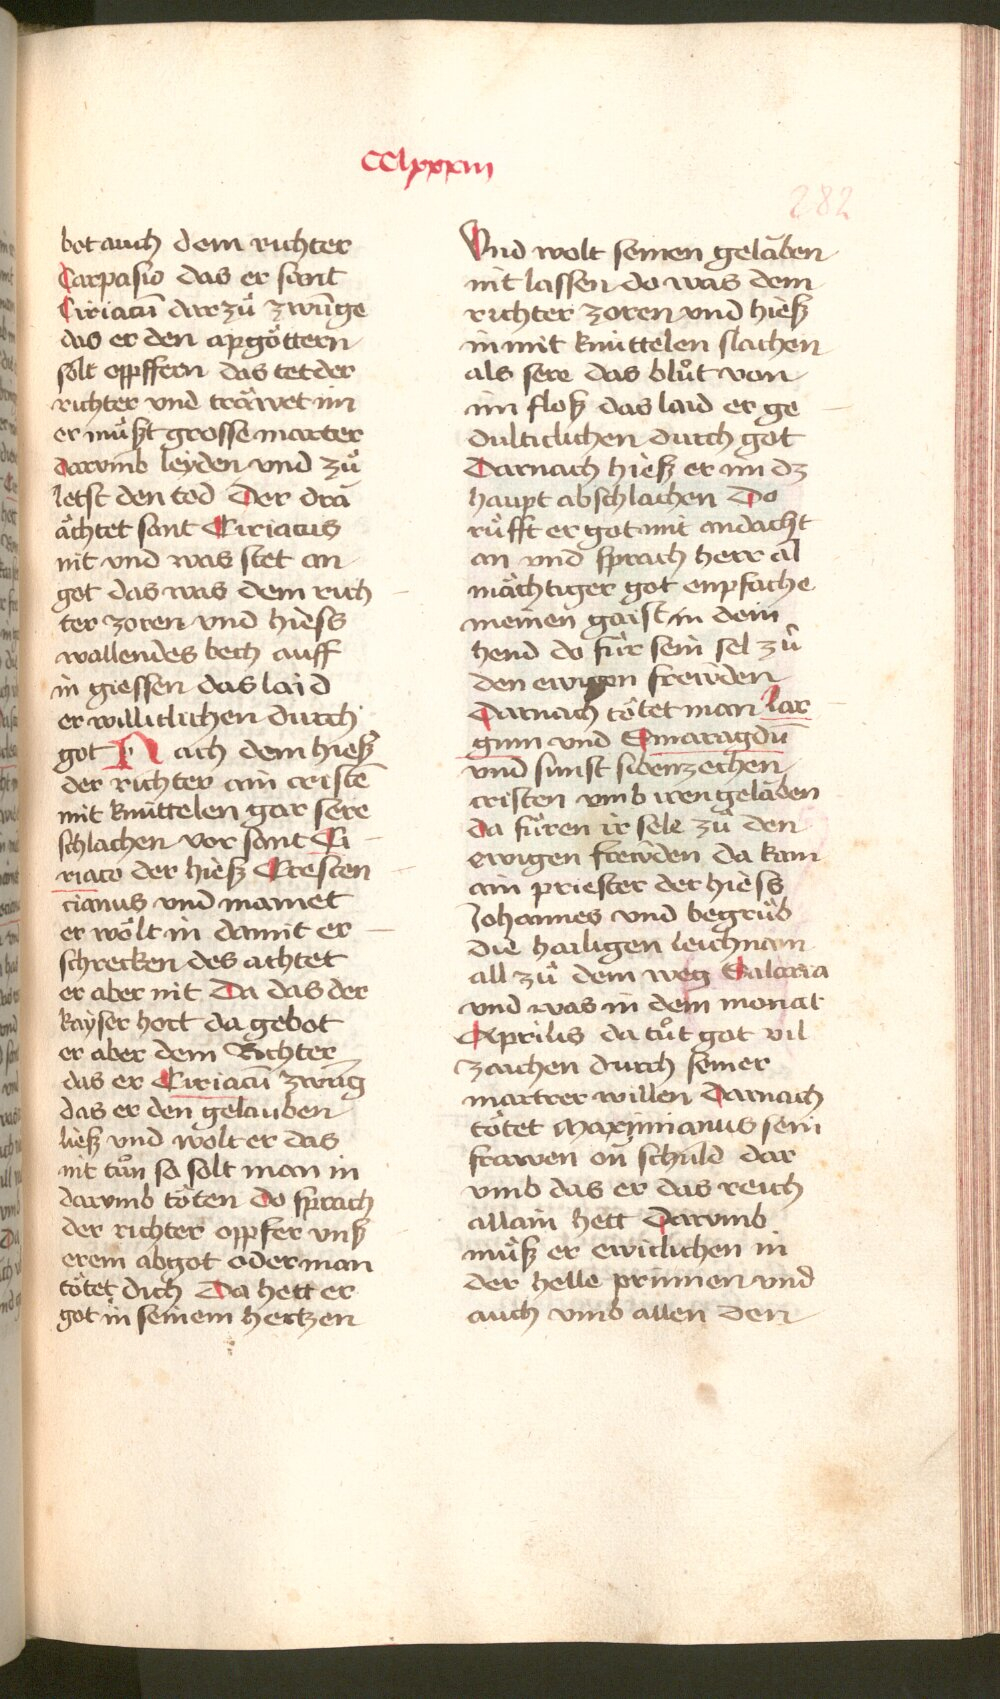 CClxxxiii
282
bot auch dem richter
Carpasio das er sant
Ciriacū dar zů zwunge
das er den apgöttern
solt oppffern das tet der
richter vnd träwet im
er müßt grosse marter
darumb leyden vnd zů
letst den tod Der dra
ächtet sant Ciriacus
nit vnd was stet an
got das was dem rich
ter zoren vnd hiess
wallendes bech auff
in giessen das laid
er williclichen durch
got Nach dem hieß
der richter ain cristē
mit knüttelen gar sere
schlachen vor sant Ci
riaco der hieß Crescen
cianus vnd mainet
er wölt in damit er
schrecken des achtet
er aber nit Da das der
kayser hort da gebot
er aber dem Richter
das er Ciriacū zwūg
das er den gelauben
ließ vnd wolt er das
nit tůn so solt man in
darvmb töten do sprach
der richter oppfer vnß
erem abgot oder man
tötet dich Da hett er
got in seinem hertzen
Vnd wolt seinen geläben
nit lassen do was dem
richter zoren vnd hieß
in mit knüttelen slachen
als sere das blůt von
im floß das laid er ge
dulticlichen durch got
Darnach hieß er im dz
haupt abschlachen Do
rüfft er got mit andacht
an vnd sprach herr al
mächtiger got enpfache
meinen gaist in dein
hend do fůr sein sel zů
den ewigen frewden
Darnach tötet man lar
gum vnd Smaragdū
vnd sunst sibenzechen
cristen vmb iren geläben
da fůren ir sele zů den
ewigen frewden da kam
ain priester der hiess
Johannes vnd begrůb
die hailigen leichnam
all zů dem weg Salaria
vnd was in dem monat
Aprilis da tůt got vil
zaichen durch seiner
martrer willen Darnach
tötet Maximianus sein
frawen on schuld dar
vmb das er das reich
allain hett Darvmb
můß er ewiclichen in
der helle prinnen vnd
auch vmb allen den